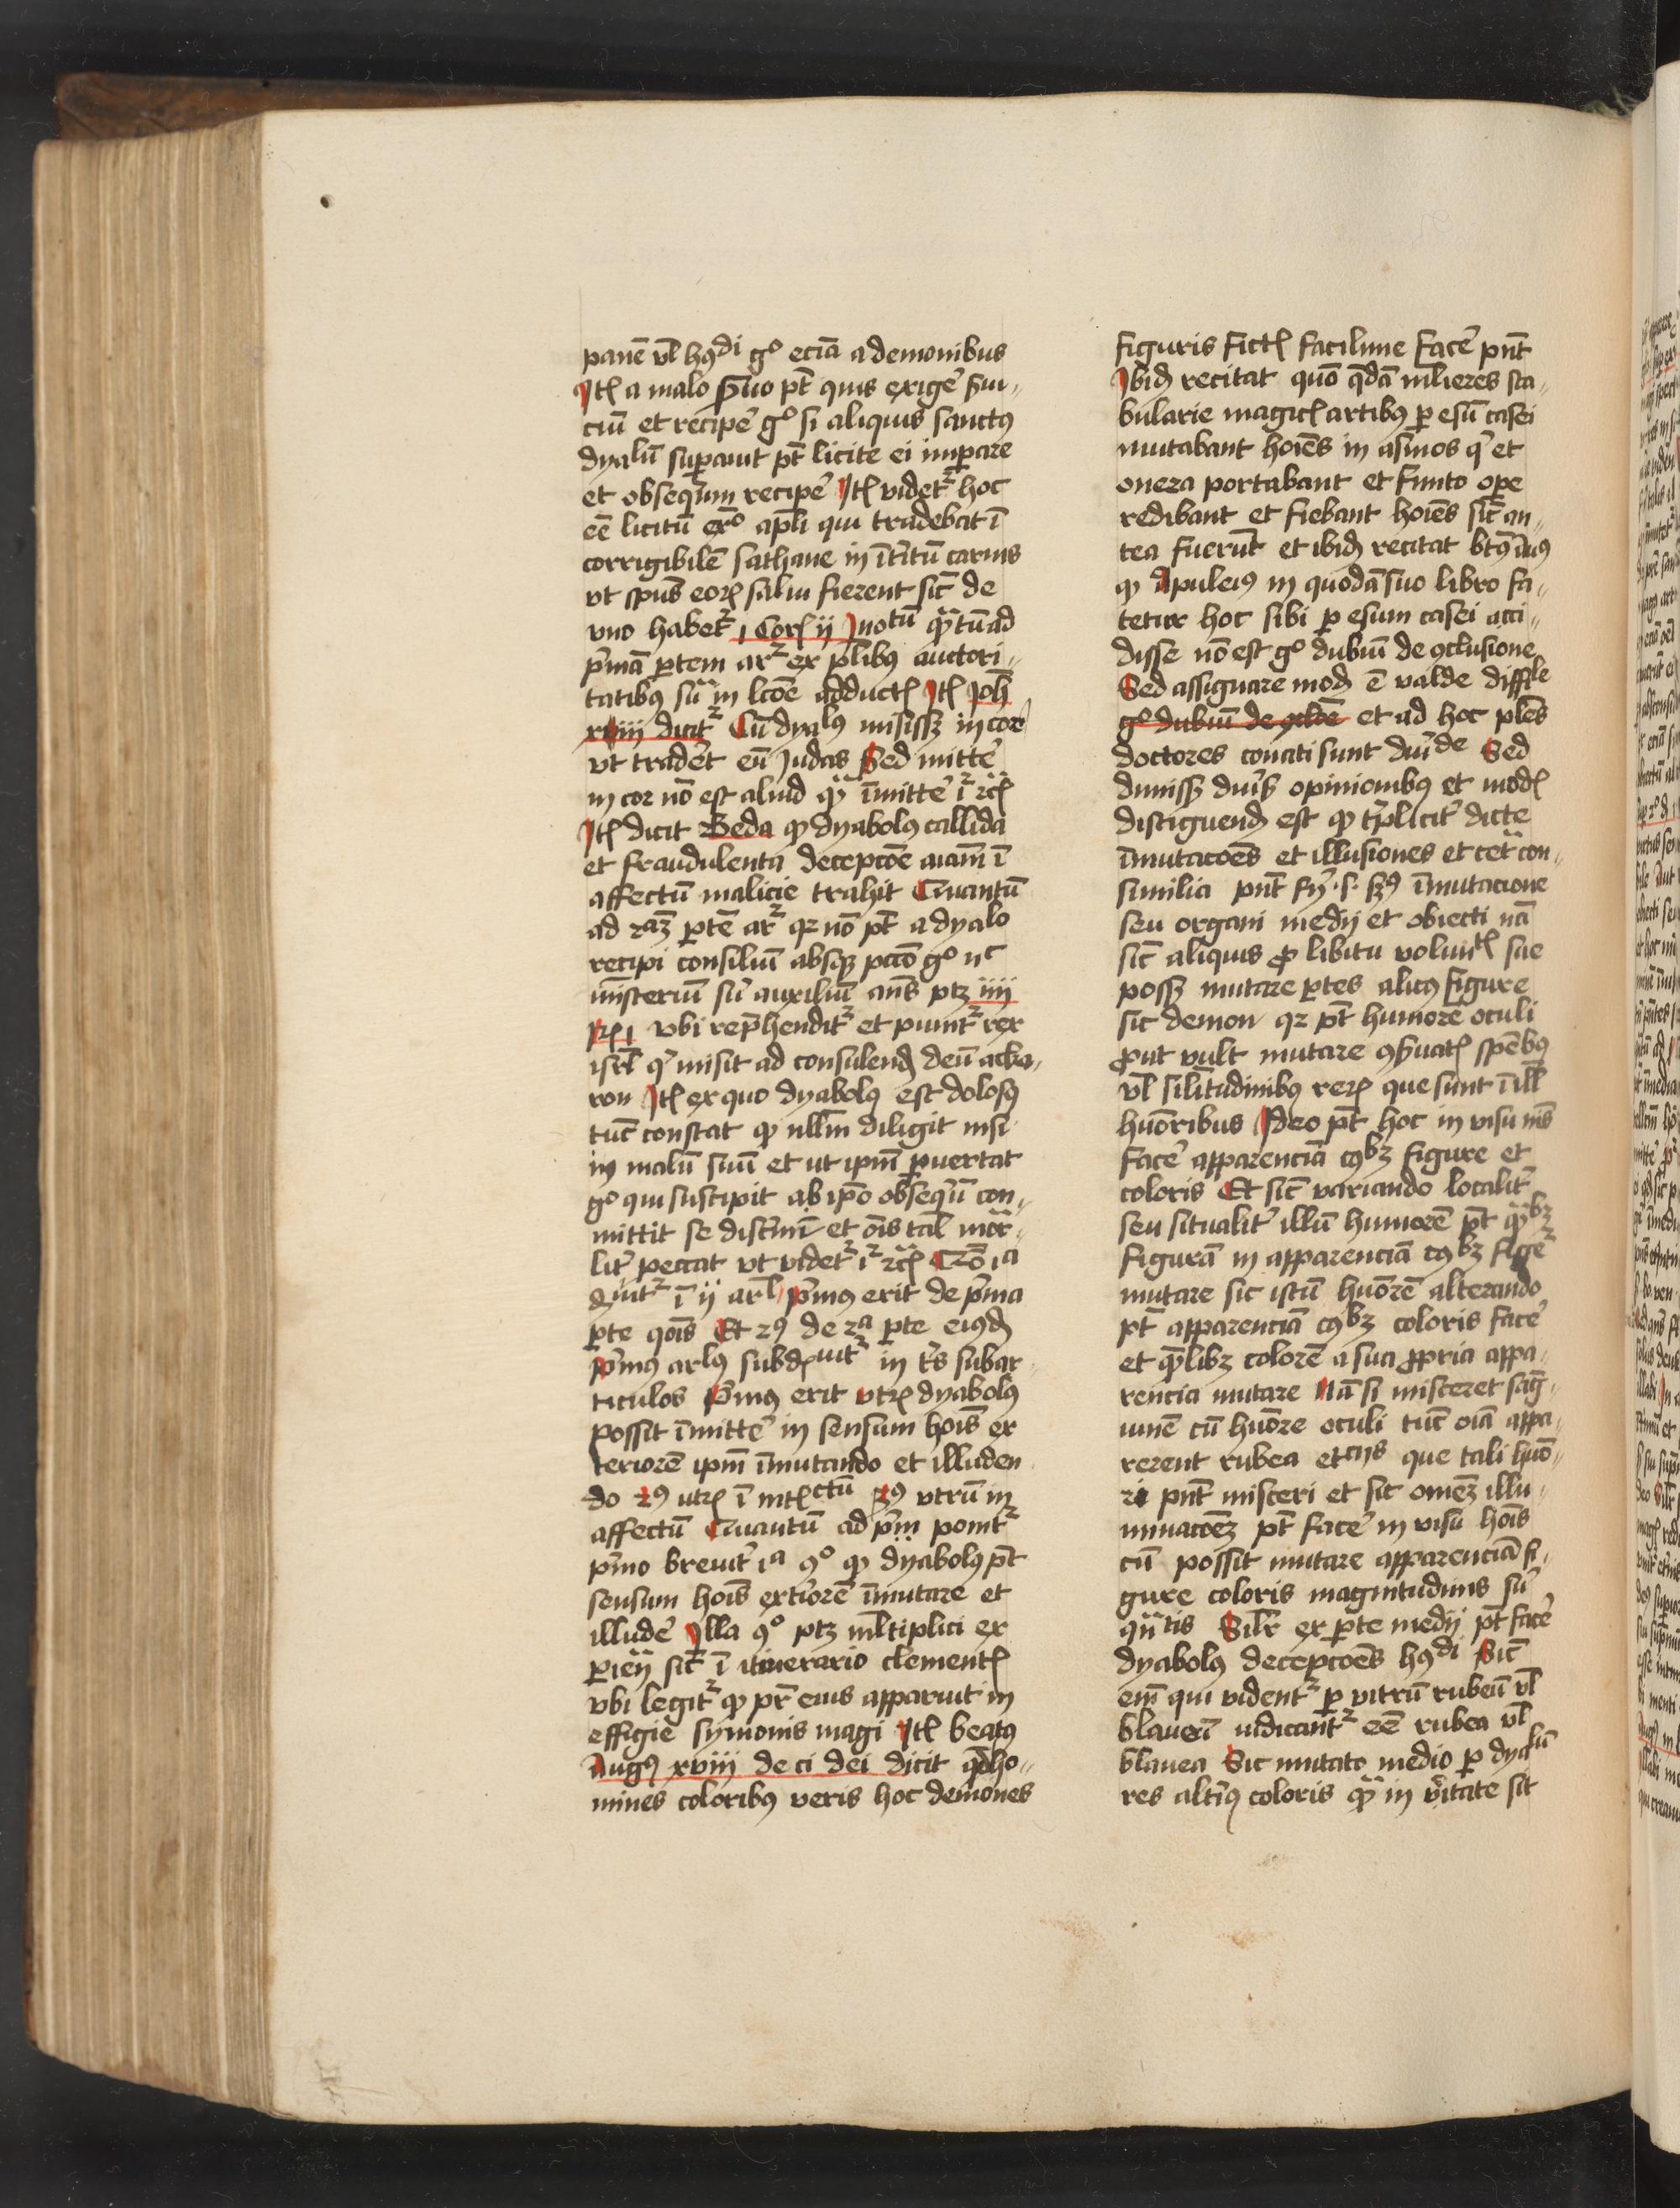 panē vl̄ hꝯdi gͦ eciā a demonibus
Itꝫ a malo ẜuo pt̄ quis exigē ẜui„
ciū et recipē gͦ si aliquis sanctꝰ
dyalū supauit pt̄ licite ei imparare
et obsequium recipē Itꝫ videtᷣ hoc
eē licitū exͦ apli qui tradebat ī
corrigibilē sathane in īt̄itū carnis
vt spūs eoꝝ salui fierent sic̄ de
vno habetᷣ 1 Corꝫ ij Inotū q̄ntū ad
p̄mā ꝑtem arᷣ ex plibꝰ auctori„
tatibꝰ sū in lcōe adductꝫ Itꝫ Joh̄
xiiij dicitᷣ Cū dyalꝰ misissꝫ in cor
vt tradēt eū Judas Sed mittē
in cor nō est aliud qᷓ īmittē iᷣ rcꝫ
Itꝫ dicit Beda ꝙ dyabolꝰ callida
et fraudulenta decepcōe aiam̄ ī
affectū malicie trahit Quantū
ad 2aꝫ ꝑtē arᷣ qꝛ nō pt̄ a dyalo
recipi consiliū absqꝫ pctō gͦ nc
misteriū sū auxiliū ans ptꝫ iiij
Rꝫ 1 vbi rep̄henditᷣ et punitᷣ rex
isrl̄ qͥ misit ad consulendꝫ deū acha„
ron Itꝫ ex quo dyabolꝰ est dolosꝰ
tūc constat ꝙ nllm̄ diligit nisi
in malū suū et ut ipm̄ ꝑuertat
gͦ qui suscipit ab ipo obseqū con„
mittit se discimī et oīs tal̄ mor„
lit̄ peccat vt videtᷣ iᷣ rcꝫ Qō 1a
duitᷣ ī ij arl̄ p̄mꝰ erit de p̄ma
ꝑte qōis Et 2ꝰ de 2a ꝑte eiꝰdꝫ
p̄mꝰ arlꝰ subdꝫuitᷣ in tr̄s subar„
ticulos P̄mꝰ erit vtꝝ dyabolꝰ
possit īmittē in sensum hois ex
teriorē ipm̄ īmutando et illuden
do 2ꝰ utꝝ ī intꝫctū 3ꝰ vtrū in
affectū Quantū ad p̄m ponitᷣ
p̄mo breuit̄ 1a ꝯͦ ꝙ dyabolꝰ pt̄
sensum hois exteriorē īmutare et
illudē Illa ꝯͦ ptꝫ ml̄tiplici ex
ꝑien̄ sic̄ ī itinerario clementꝫ
vbi legitᷣ ꝙ pr̄ eius apparuit in
effigie symonis magi Itꝫ beatꝰ
Augꝰ xviij de ci dei dicit qd̄ ho„
mines coloribꝰ veris hoc demones
figuris fictꝫ facilime facē pn̄t
Ibidꝫ recitat quō q̄dā mlieres sta„
bularie magicꝫ artibꝰ ꝑ esū casei
mutabant hoīes in asinos qͥ et
onera portabant et finito oꝑe
redibant et fiebant hoīes sic̄ an„
tea fuerūt et ibidꝫ recitat btꝰ auꝰ
ꝙ Apuleiꝰ in quodā suo libro fa„
tetur hoc sibi ꝑ esum casei acci„
disse nō est gͦ dubiū de ꝯclusione
Sed assignare modꝫ ē valde diffīle
gͦ dubiū de ꝯclōe et ad hoc plēs
doctores conati sunt diūde Sed
dimissꝫ diūs opinionibꝰ et modꝫ
distīguendꝫ est ꝙ tp̄licit̄ dicte
īmutacōes et illusiones et cet̄ con„
similia pn̄t fij ·s· scꝫ īmutacione
seu organi medij et obiecti nā
sic̄ aliquis ꝓ libitu volun̄tꝫ sue
possꝫ mutare ꝑtes alicꝰ figure
sic demon qꝛ pt̄ humore oculi
ꝓut vult mutare ꝯẜuatꝫ spēbꝰ
vl̄ silītudinibꝰ reꝝ que sunt ī ill̄
huōribus Ideo pt̄ hoc in visu nīs
facē apparenciā cꝯbꝫ figure et
coloris Et sic̄ variando localit̄
seu situalit̄ illū humorē pt̄ qᷓbꝫ
figurā in apparenciā cꝯbꝫ figē
mutare sic istū huōrē alterando
pt̄ apparenciā cꝯbꝫ coloris facē
et q̄libꝫ colorē a sua ꝓpria appa„
rencia mutare Nā si misceret sāg„
uinē cū huōre oculi tūc oīa appa„
rerent rubea et cijs que tali huō„
ri pn̄t misceri et sic omēꝫ illu„
minacōeꝫ pt̄ facē in visu hoīs
cū possit mutare apparenciā fi„
gure coloris magnitudinis sū
qn̄tis Silr̄ ex ꝑte medij pt̄ facē
dyabolꝰ decepcōes hꝯdi Sic̄
em̄ qui vidēntᷣ ꝑ vitrū rubeū vl̄
blaueū iudicantᷣ eē rubea vl̄
blauea Sic mutato medio ꝑ dyalū
res altīꝰ coloris qᷓ in v̄itate sit